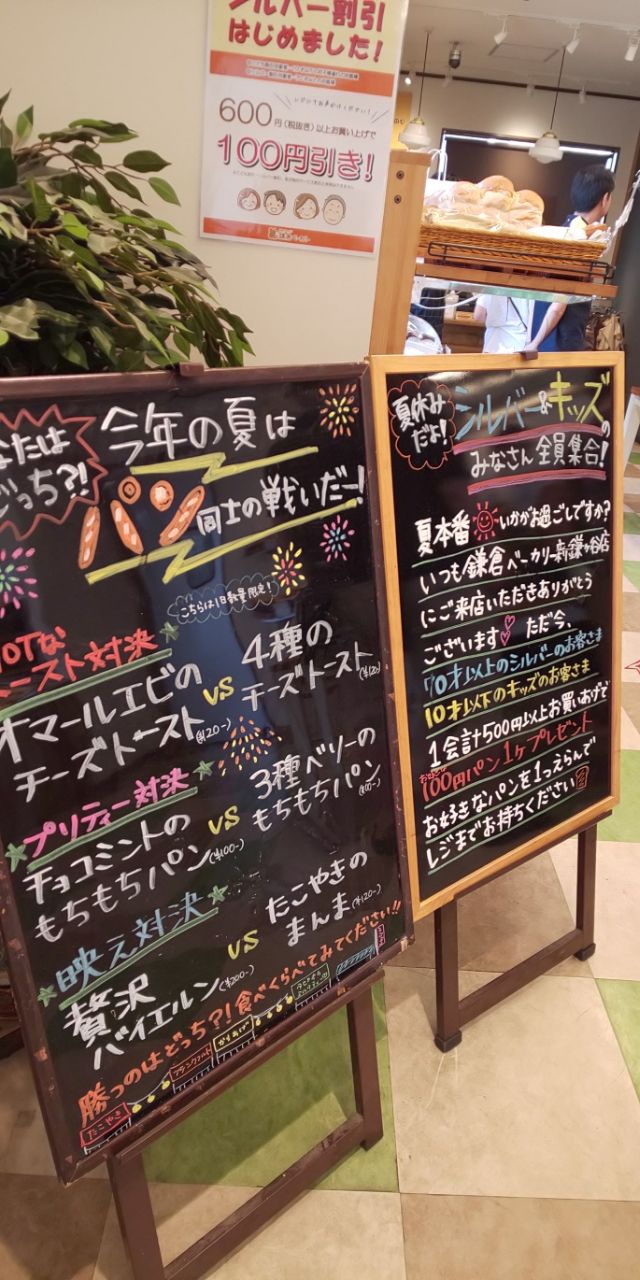 シルバー割引
はじめました!
600円(税抜き)以上お買い上げで
100円引き!
なたは
どっち?!
今年の夏は
パン同士の戦いだー!
こちらは1日数量限定!
HOTな
トースト対決
オマールエビの
チーズトースト(¥120-)
VS
4種の
チーズトースト(¥120-)
プリティー対決
チョコミントの
もちもちパン(¥100-)
VS
3種ベリーの
もちもちパン(¥100-)
映え対決
贅沢
バイエルン(¥200-)
VS
たこやきの
まんま(¥120-)
勝つのはどっち?!食べくらべてみてください!!
たこやき
フランクフルト
からあげ
夏休み
だよ!
シルバー&キッズの
みなさん全員集合!
夏本番いかがお過ごしですか?
いつも鎌倉ベーカリー新鎌ヶ谷店
にご来店いただきありがとう
ございます ただ今、
70才以上のシルバーのお客さま
10才以下のキッズのお客さま
1会計500円以上お買いあげで
100円パン1ヶプレゼント
お好きなパンを1つえらんで
レジまでお持ちください